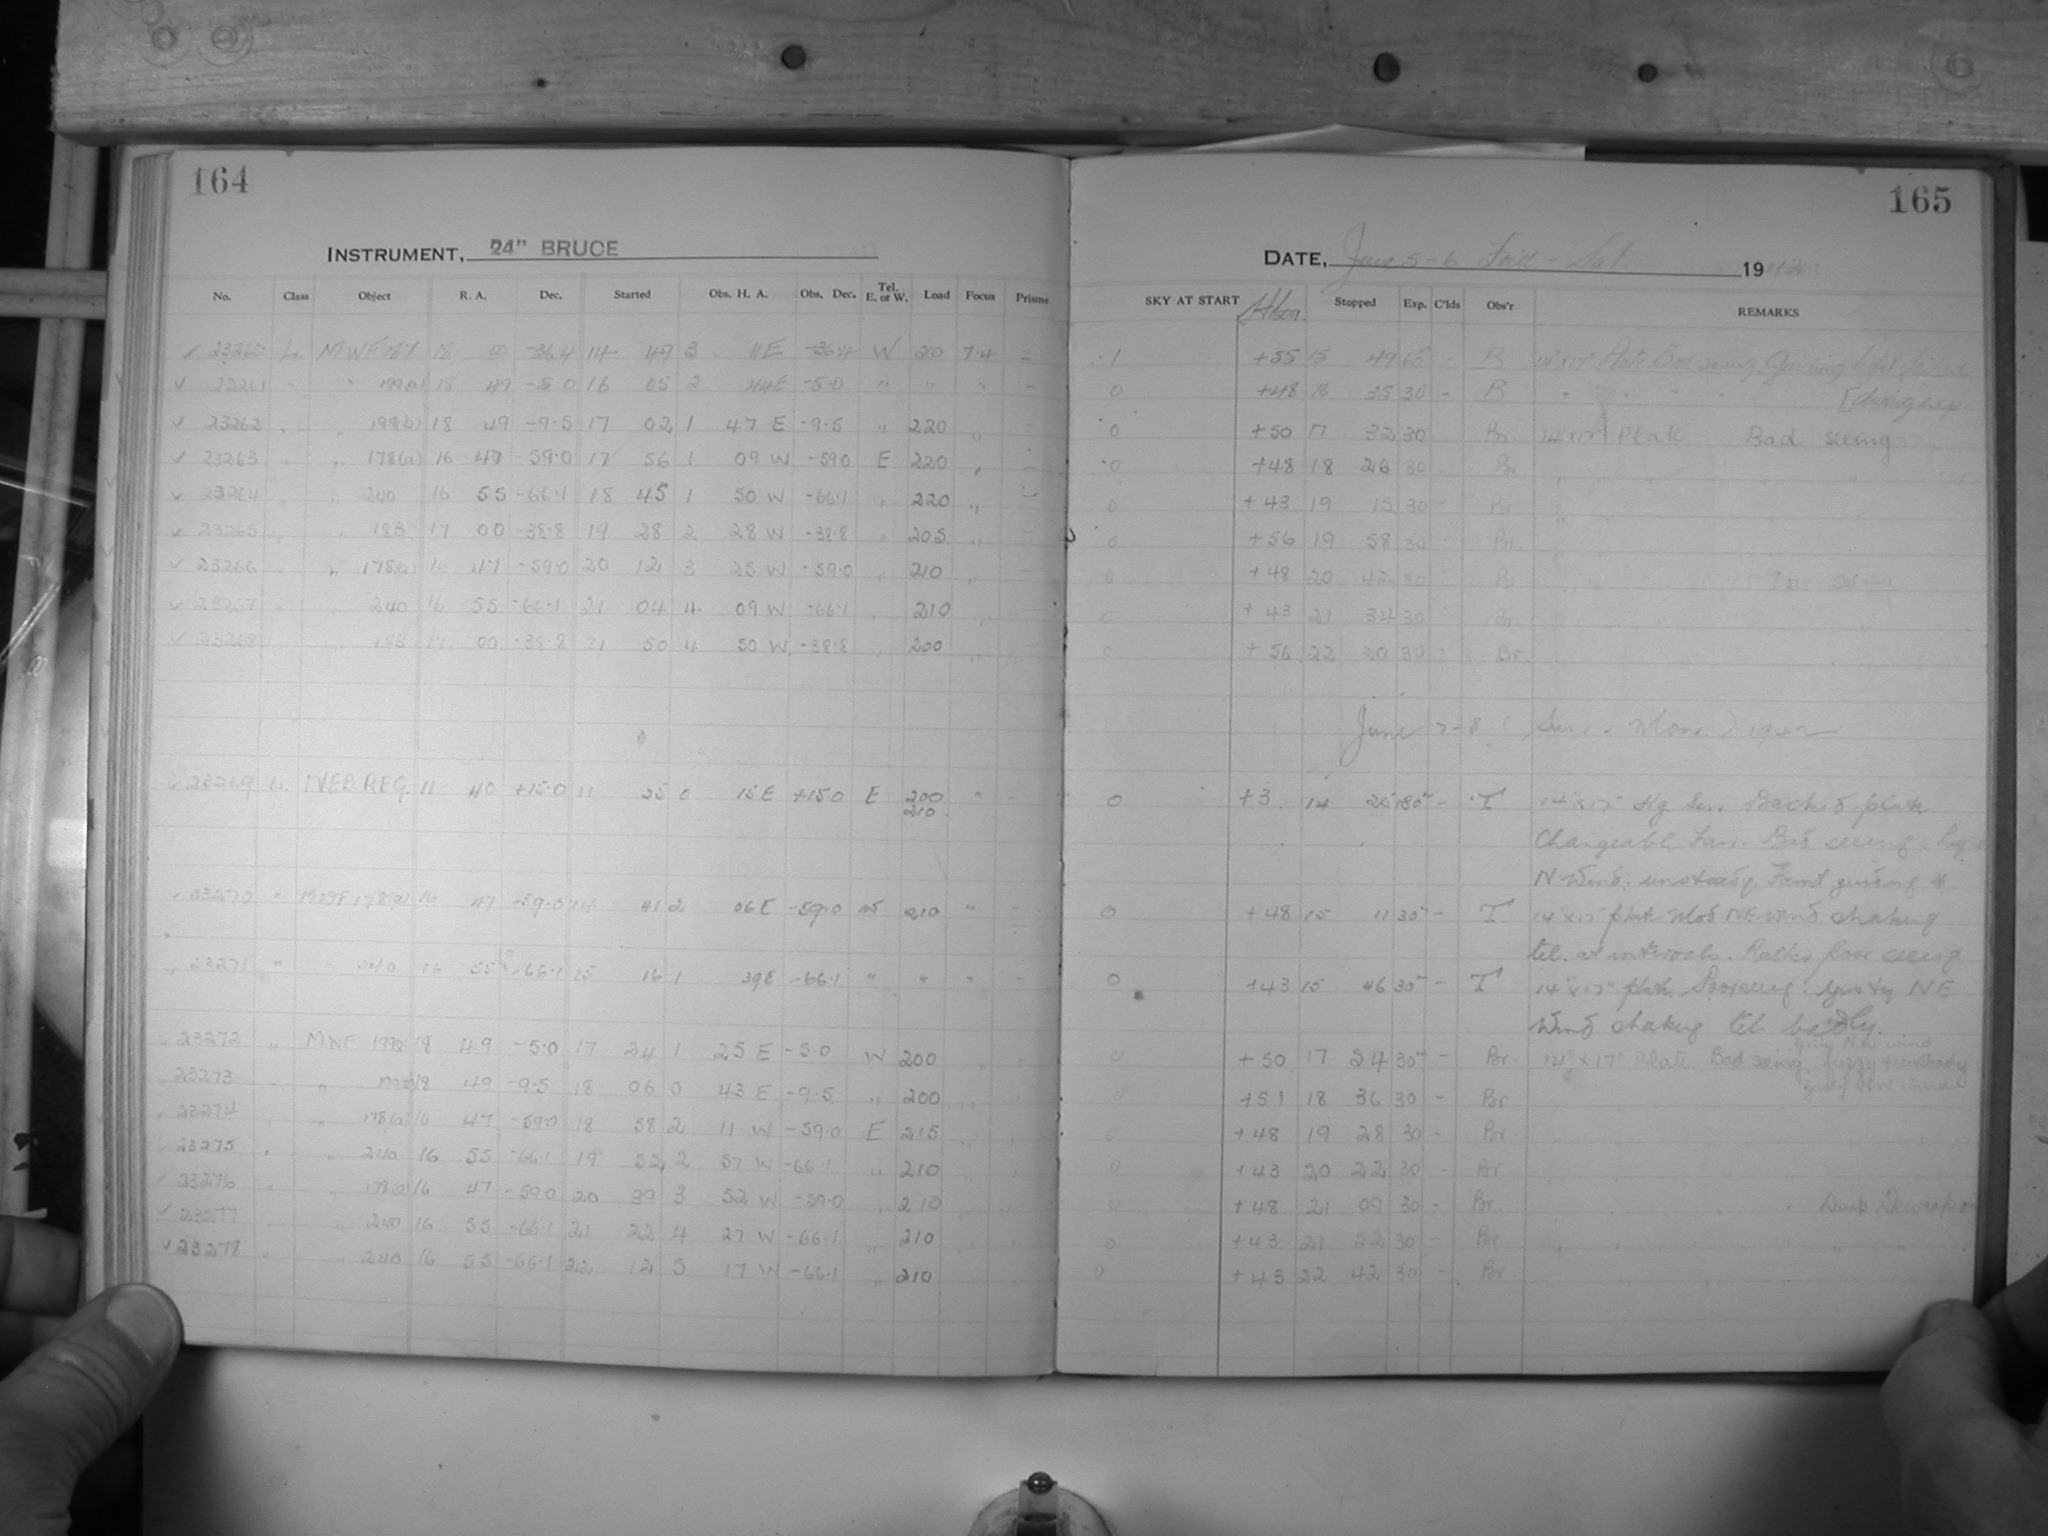 164
INSTRUMENT, 24" BRUCE
No. Class Object R. A. Dec. Started Obs. H. A. Obs. Dec. Tel. E. or W. Load Focus Prisms
23260 L. MWF 187 18 00 -36.4 14 49 3 11 E -36.4 W 210 7.4 –
23261 " 199(a) 18 49 -5.0 16 05 2 44 E -5.0 " " " –
23262 " 199(b) 18 49 -9.5 17 02 1 47 E -9.5 " 220 " –
23263 " 178(a) 16 47 -59.0 17 56 1 09 W -59.0 E 220 " –
23264 " 240 16 55 -66.1 18 45 1 50 W -66.1 " 220 " –
23265 " 183 17 00 -38.8 19 28 2 28 W -38.8 " 205 " –
23266 " 178(a) 16 47 -59.0 20 12 3 25 W -59.0 " 210 "
23267 " 240 16 55 -66.1 21 04 4 09 W -66.1 " 210 "
23268 " 183 17 00 -38.8 21 50 4 50 W -38.8 " 200 "
23269 L. VEB REG. 11 40 +15.0 11 25 0 15 E +15.0 E 200 " –
210
23270 " MWF 178(a) 16 47 -59.0 14 41 2 06 E -59.0 W 210 " –
23271 " " 240 16 55 -66.1 15 16 1 39 E -66.1 " " " –
23272 " MWF 199a 18 49 -5.0 17 24 1 25 E -5.0 W 200
23273 " 18 49 -9.5 18 06 0 43 E -9.5 " 200
23274 " 178(a) 16 47 -59.0 18 58 2 11 W -59.0 E 215
23275 " 240 16 55 -66.1 19 52 2 57 W -66.1 " 210
23276 " 178(a) 16 47 -59.0 20 39 3 52 W -59.0 " 210
23277 " 240 16 55 -66.1 21 22 4 27 W -66.1 " 210
23278 " 240 16 55 -66.1 22 12 5 17 W -66.1 " 210
165
DATE, June 5-6 Frid - Sat. 1942
SKY AT START Stopped Exp. C'lds Obs'r REMARKS
1 +55 15 49 60 – B 14"x17" Plate Bad seeing. Guiding light failed
0 +48 16 35 30 – B [during exp.
0 +50 17 32 30 Br. 14"x17" Plate Bad seeing
0 +48 18 26 30 Br.
0 +43 19 15 30 Br.
0 +56 19 58 30 Br.
0 +48 20 42 30 Br.
0 +43 21 34 30 Br.
0 +56 22 20 30 Br.
June 7-8 (Sun. - Mon.) 1942
0 +3 14 25 180m – T 14"x17" Backed plate
Changeable Bad seeing.
N Wind. unsteady. Faint guiding *
0 +48 15 11 30m – T 14"x17" plate Mod NE wind shaking
tel. at intervals. Rather poor seeing
0 +43 15 46 30m – T 14"x17" plate. Poor seeing. Gusty NE
Wind shaking tel. badly.
0 +50 17 54 30m – Br. 14"x17" Plate Bad seeing fuzzy + unsteady
0 +51 18 36 30 – Br
0 +48 19 28 30 – Br.
0 +43 20 22 30 – Br.
0 +48 21 09 30 – Br.
0 +43 21 52 30 – Br
0 +43 22 42 30 – Br